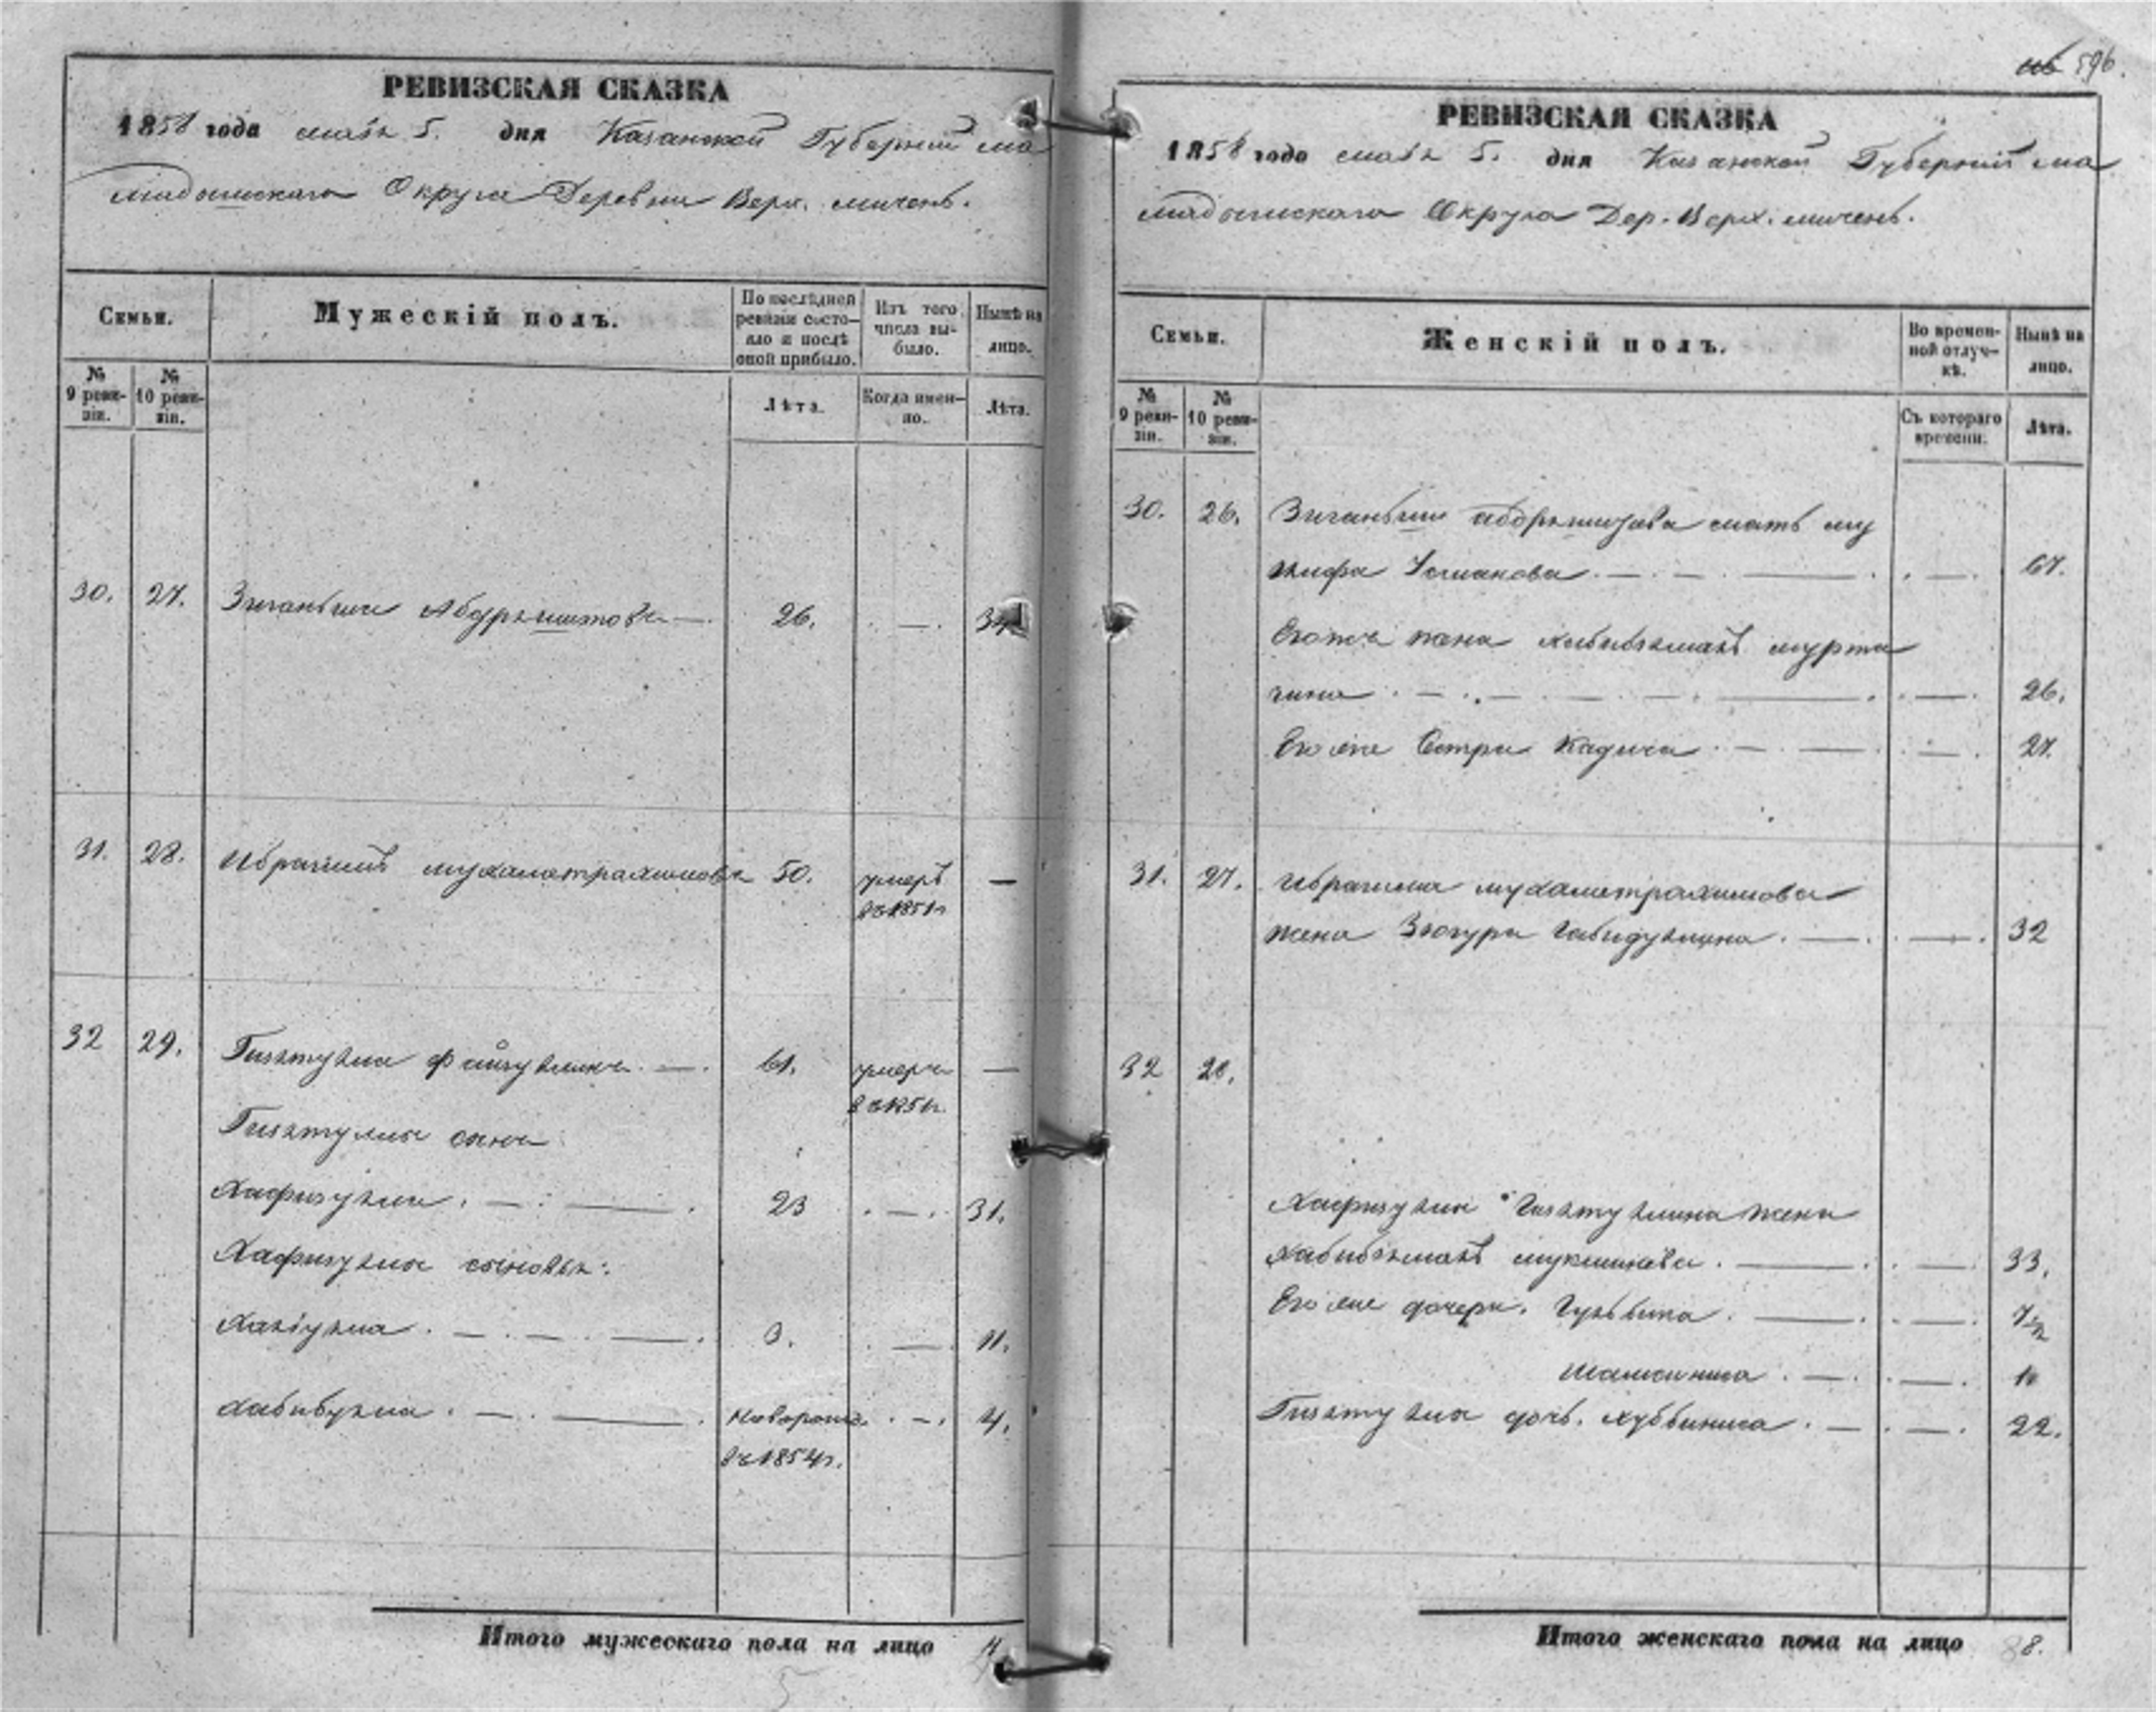 РЕВИЗСКАЯ СКАЗКА
1858 года маія 5. дня Казанской Губерніи Ма
мадышскаго Округа Деревни Верх. Мичень.
Семьи.
Мужескій полъ.
По послѣдней ревизіи состояло и послѣ оной прибыло.
Изъ того числа выбыло.
Нынѣ на лицо.
№ 9 ревизіи.
№ 10 ревизіи.
Лѣта.
Когда именно.
Лѣта.
30. 27. Зиганьши 26. — .
31. 28. Ибрагимъ Мухаметрахимовъ 50. умеръ —
въ 1851 г
32 29. Гизятулла Файзуллинъ. — . 61. умеръ —
въ 1851 г.
Гизятуллы сынъ
Хафизулла . — . — . 23 . — . 31.
Хафизуллы сыновья:
. — . — . — . 3. . — . 11.
Хабибулла . — . — . новорожд. . — . 4.
въ 1854 г.
Итого мужескаго пола на лицо 4
5
596.
РЕВИЗСКАЯ СКАЗКА
1858 года маія 5. дня Казанской Губерніи Ма
мадышскаго Округа Дер. Верх. Мичень.
Семьи.
Женскій полъ.
Во временной отлучкѣ.
Нынѣ на лицо.
№ 9 ревизіи.
№ 10 ревизіи.
Съ котораго времени.
Лѣта.
30. 26. Зиганьши мать
Усманова . — . — . — . . — . 67.
Егоже жена Мурта
зина . — . — . — . . — . 26.
Его же Сестра . — . — . . — . 27.
31. 27. Ибрагима Мухаметрахимова
жена Зюгура Габидуллина . — . . — . 32
32 28.
Хафизуллы Гизятуллина жена
. — . . — . 33.
Его же дочери . — . . — . 7
. — . . — . 1
Гизятуллы дочь . — . . — . 22.
Итого женскаго пола на лицо 8.